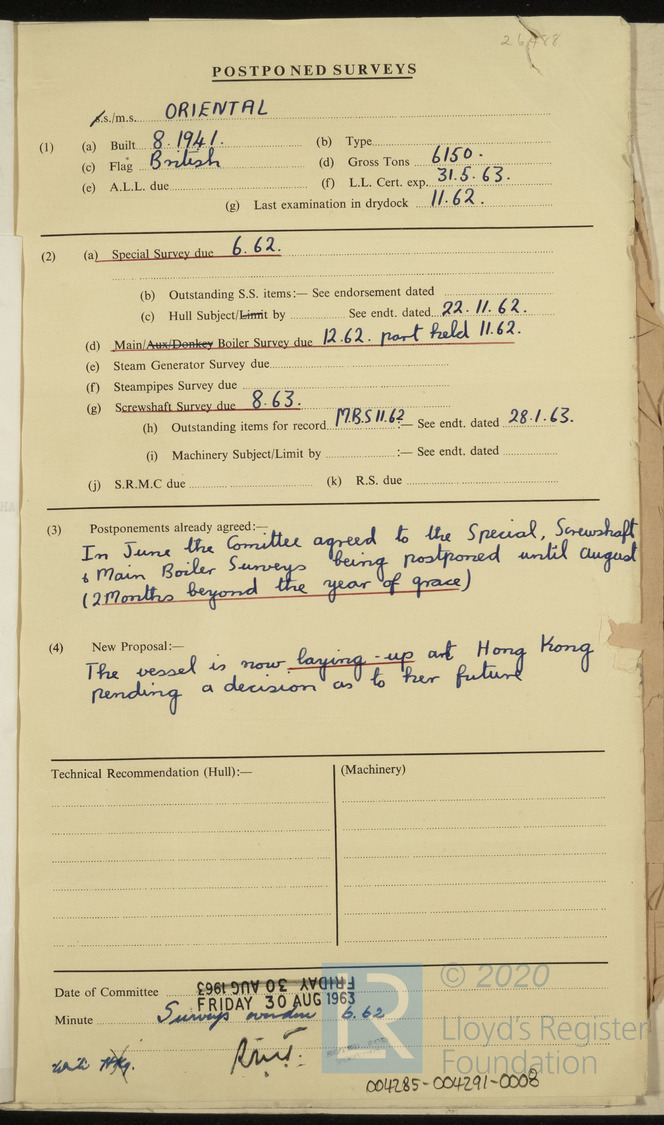 26488
POSTPONED SURVEYS
s.s./m.s. ORIENTAL
(1) (a) Built 8.1941. (b) Type
(c) Flag British (d) Gross Tons 6150.
(e) A.L.L. due (f) L.L. Cert. exp. 31.5.63.
(g) Last examination in drydock 11.62.
(2) (a) Special Survey due 6.62.
(b) Outstanding S.S. items:— See endorsement dated
(c) Hull Subject/Limit by See endt. dated 22.11.62.
(d) Main/Aux/Donkey Boiler Survey due 12.62. part held 11.62.
(e) Steam Generator Survey due
(f) Steampipes Survey due
(g) Screwshaft Survey due 8.63.
(h) Outstanding items for record M.B.S 11.62 :— See endt. dated 28.1.63.
(i) Machinery Subject/Limit by :— See endt. dated
(j) S.R.M.C due (k) R.S. due
(3) Postponements already agreed:—
In June the Comittee agreed to the Special, Screwshaft
& Main Boiler Surveys being postponed until August
(2 Months beyond the year of grace)
(4) New Proposal:—
The vessel is now laying-up at Hong Kong
pending a decision as to her future
Technical Recommendation (Hull):— (Machinery)
FRIDAY 30 AUG 1963
Date of Committee FRIDAY 30 AUG 1963
Minute Surveys overdue 6.62
© 2020
LR
Lloyd's Register
Foundation
004285-004291-0008